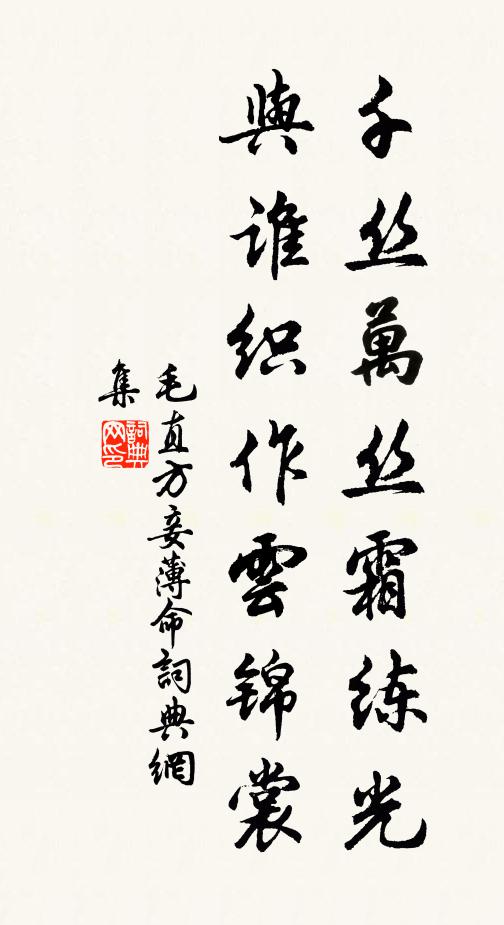 千丝萬丝霜练光
與谁织作雲锦裳
毛直方妾薄命詞典網
集
詞典
网印